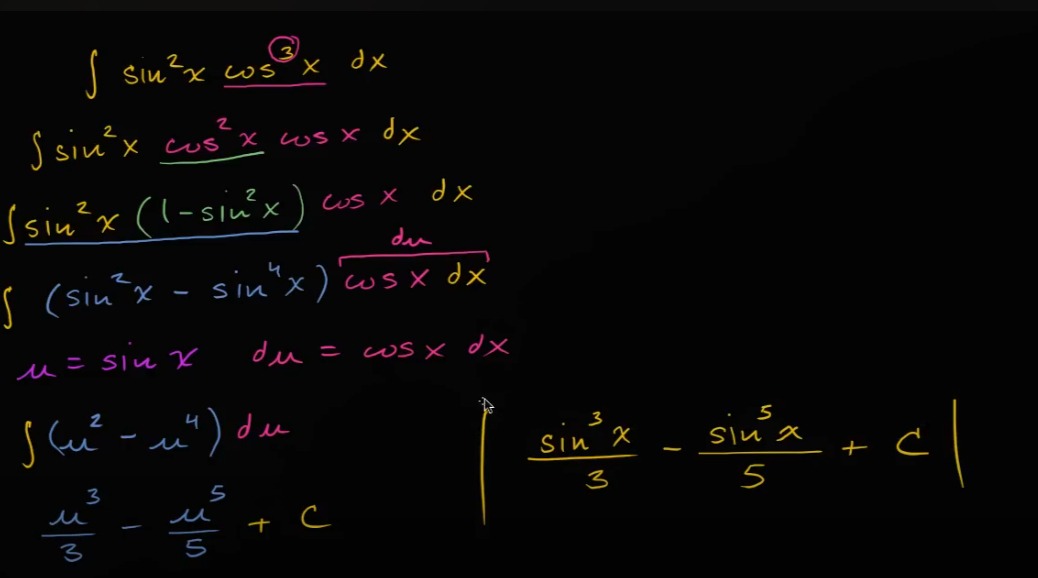 ∫ sin²x cos³x dx
∫ sin²x cos²x cos x dx
∫ sin²x (1 - sin²x) cos x dx
du
∫ (sin²x - sin⁴x) cos x dx
u = sin x du = cos x dx
∫ (u² - u⁴) du
u³/3 - u⁵/5 + C
| sin³x/3 - sin⁵x/5 + C |